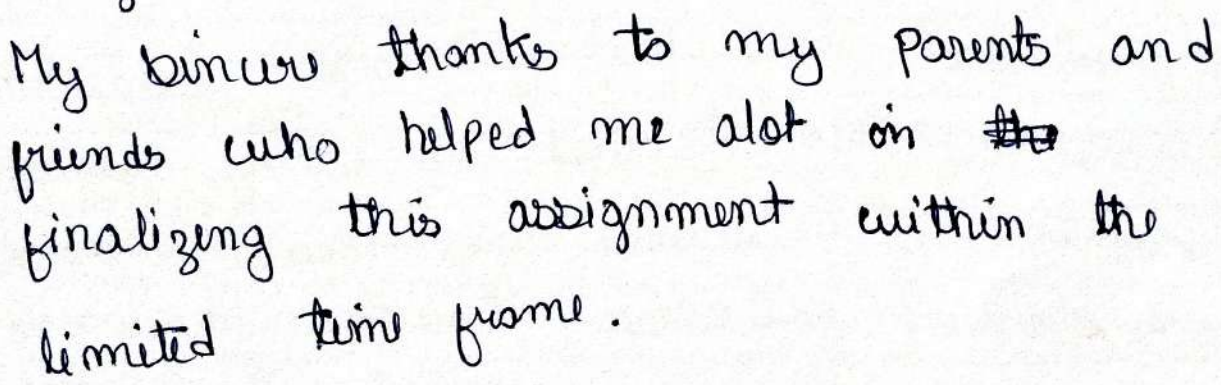 My sincere thanks to my parents and
friends who helped me alot in the
finalizing this assignment within the
limited time frame.